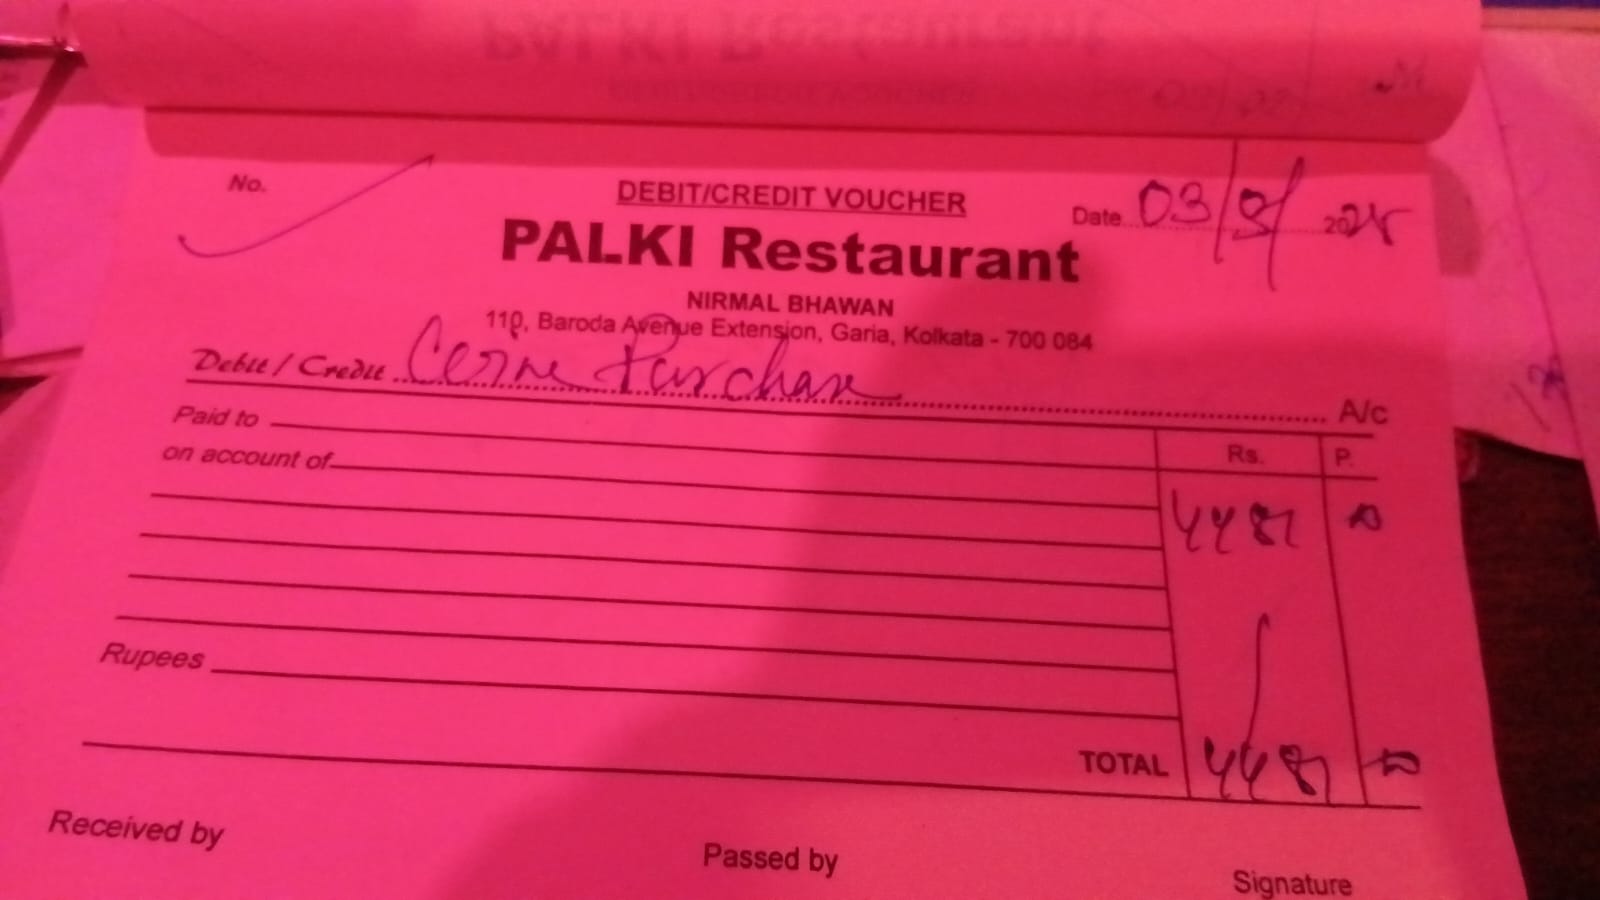 No.
DEBIT/CREDIT VOUCHER
Date 03/9/ 2025
PALKI Restaurant
NIRMAL BHAWAN
110, Baroda Avenue Extension, Garia, Kolkata - 700 084
Debit / Credit Purchase A/c
Paid to
Rs. P.
on account of
Rupees
TOTAL
Received by
Passed by
Signature